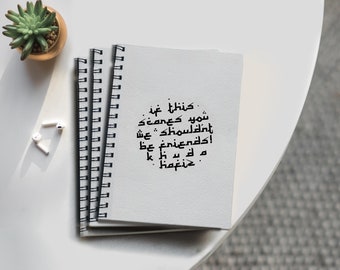 if this
scares you
we shouldnt
be friends!
khuda
hafiz